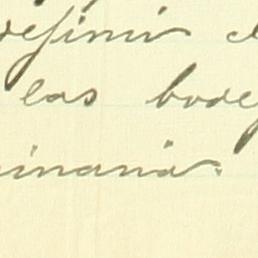 definir e
las bode
inania.